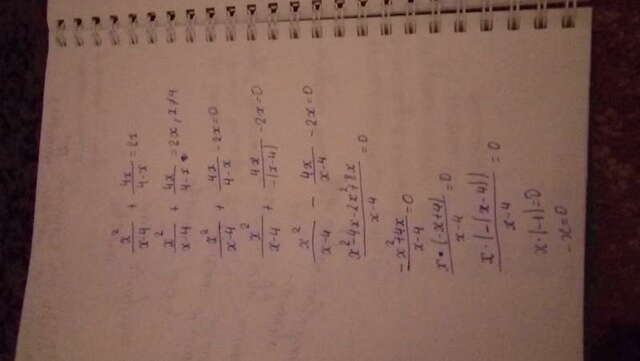 x²/(x-4) + 4x/(4-x) = 2x
x²/(x-4) + 4x/(4-x) = 2x, x≠4
x²/(x-4) + 4x/(4-x) - 2x=0
x²/(x-4) + 4x/(-(x-4)) - 2x=0
x²/(x-4) - 4x/(x-4) - 2x=0
(x²-4x-2x²+8x)/(x-4) = 0
(-x²+4x)/(x-4) = 0
(x·(-x+4))/(x-4) = 0
(x·(-(x-4)))/(x-4) = 0
x·(-1)=0
-x=0